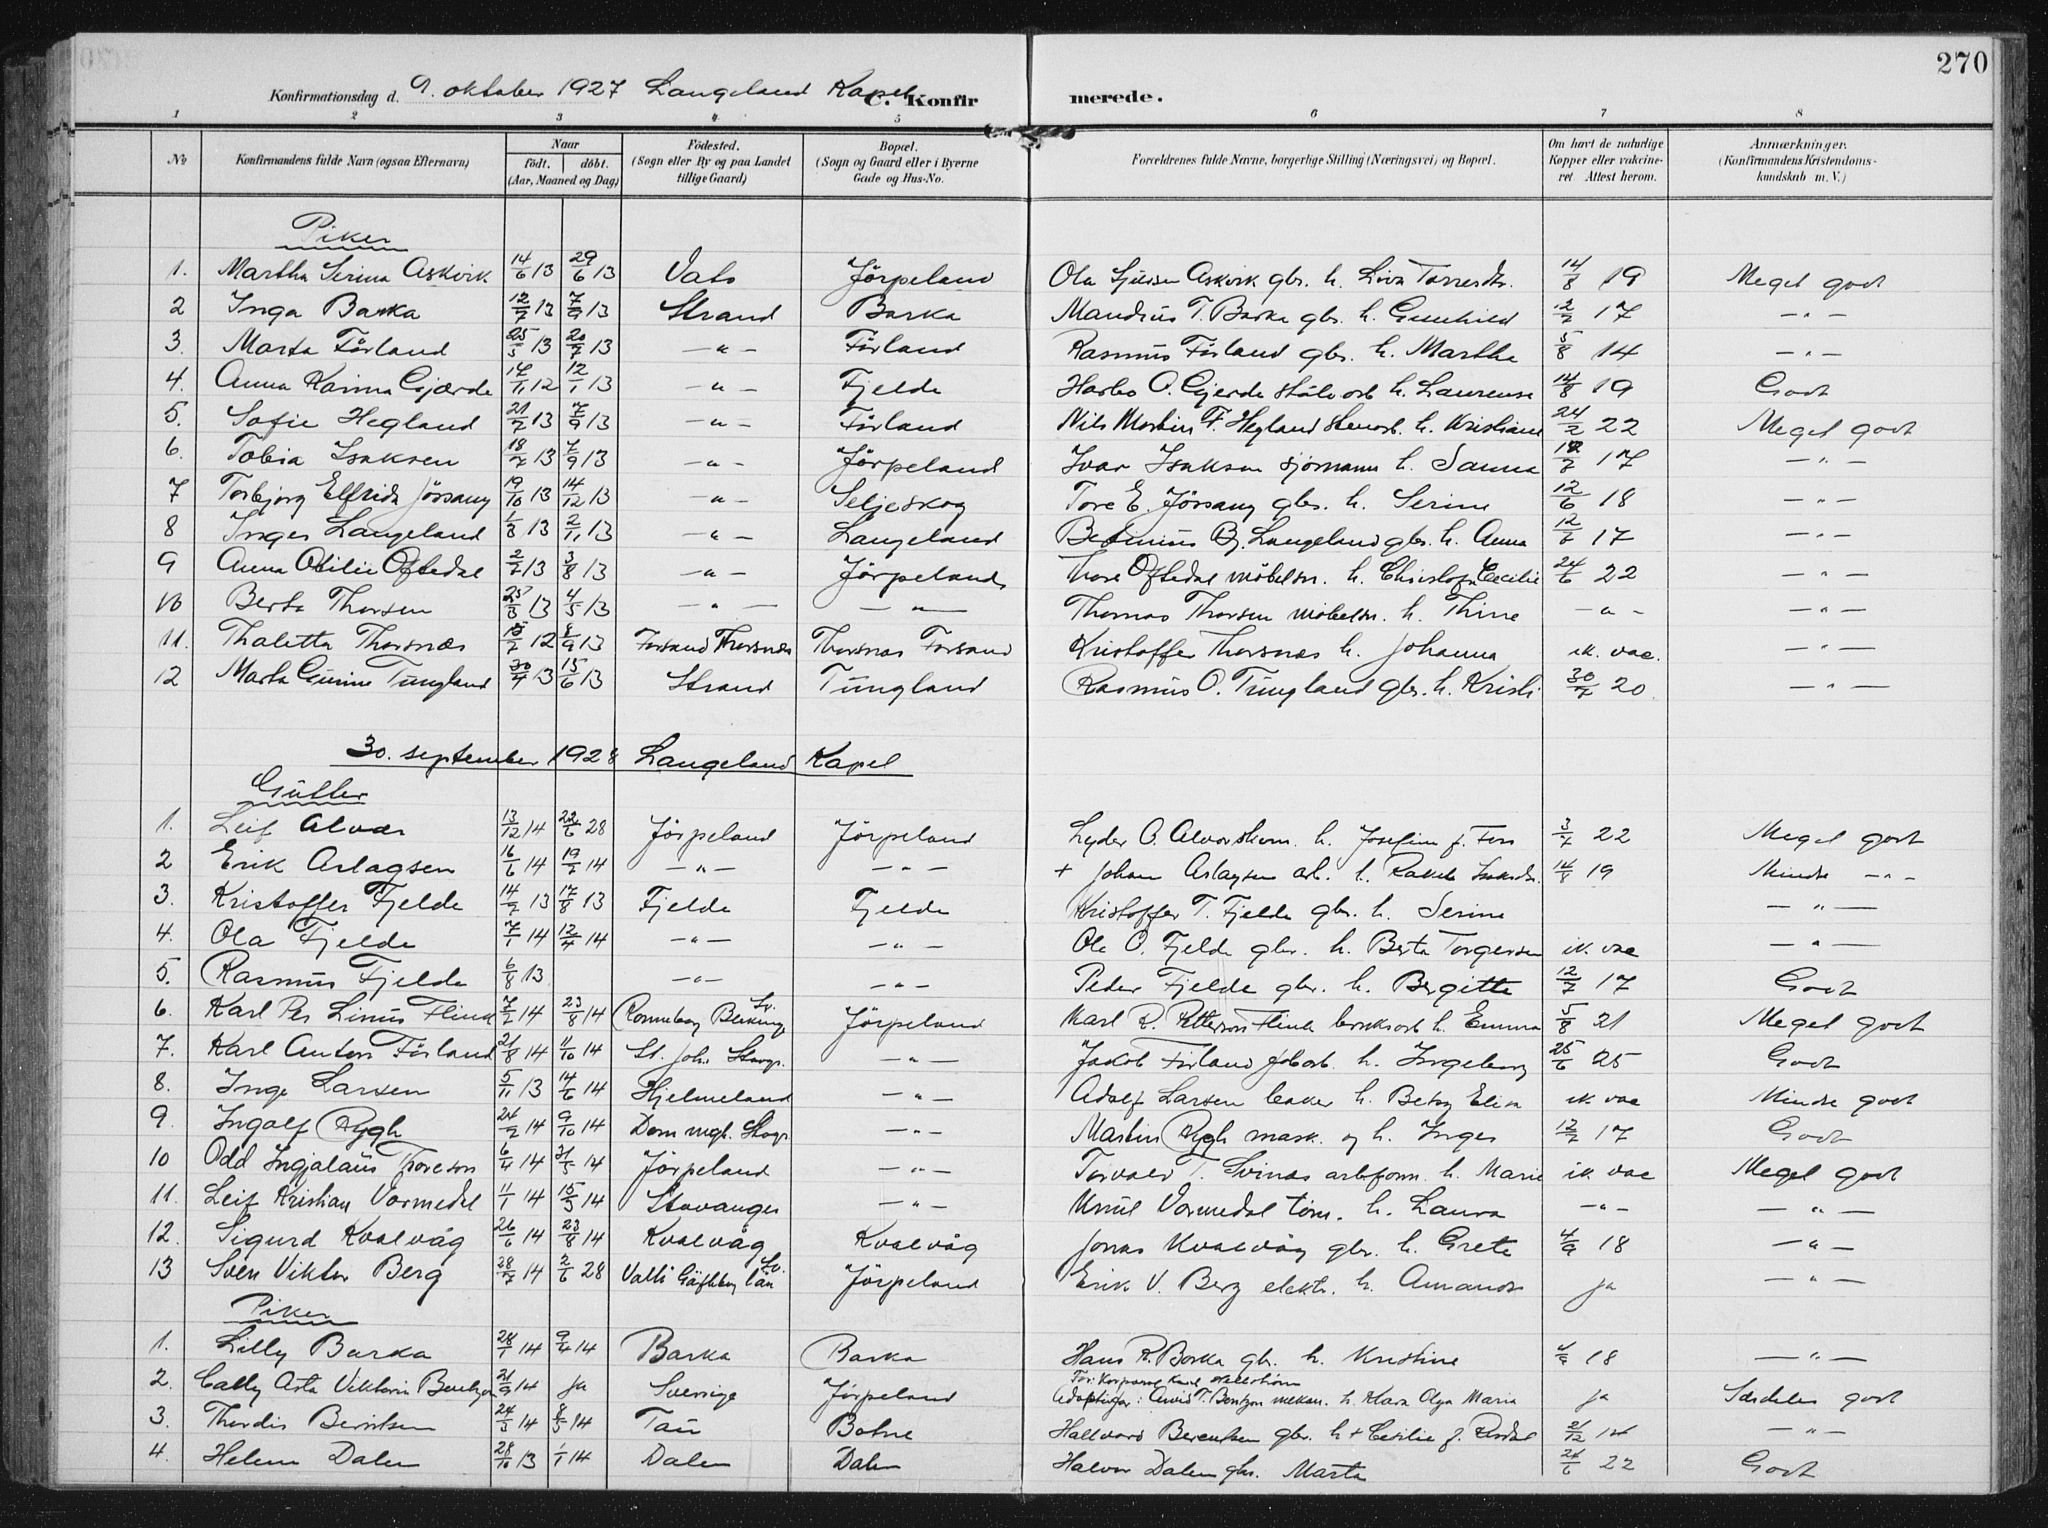 270
Konfirmationsdag d. 9. oktober 1927 Langeland Kapel C. Konfir merede.
1 2 3 4 5 6 7 8
No Konfirmandens fulde Navn (ogsaa Efternavn) Naar født. døbt. (Aar, Maaned og Dag) Fødested. (Sogn eller By og paa Landet tillige Gaard) Bopæl. (Sogn og Gaard eller i Byerne Gade og Hus-No. Forældrenes fulde Navne, borgerlige Stilling (Næringsvei) og Bopæl. Om havt de naturlige Kopper eller vakcineret. Attest herom. Anmærkninger. (Konfirmandens Kristendomskundskab m. V.)
Piker
1. Martha Serina Askvik 14/6 13 29/6 13 Vats Jörpeland Ola Askvik gbr. h. 14/8 19 Meget godt
2 Inga Barka 12/7 13 7/9 13 Strand Barka T. Barka gbr. h. Gunhild 2/7 17 —"—
3. Marta Förland 25/5 13 20/7 13 —"— Förland Rasmus Förland gbr. h. Martha 5/8 14 —"—
4. Anna Karina Gjærde 14/11 12 12/1 13 —"— Fjelde O. Gjerde h. Laurense 14/8 19 Godt
5. Sofie Hegland 21/7 13 7/9 13 —"— Förland Nils Martin F. Hegland stenarb. h. Kristiane 24/2 22 Meget godt
6. Tobia Isaksen 18/7 13 7/9 13 —"— Jörpeland Ivar Isaksen sjömann h. Sanna 17 —"—
7 Torbjørg Elfrida Jössang 19/10 13 14/12 13 —"— Seljeskog Tore E. Jössang gbr. h. Serine 12/6 18 —"—
8 Inger Langeland 1/8 13 2/11 13 —"— Langeland Langeland gbr. h. Anna 12/6 17 —"—
9 Anna Otilie Oftedal 2/7 13 3/8 13 —"— Jörpeland Thore Oftedal möbelsn. h. Cecilie 24/6 22 —"—
10 Berta Thorsen 25/3 13 4/5 13 —"— —"— Thomas Thorsen möbelsn. h. Thine —"— —"—
11. Thaletta Thorsnæs 12 13 Forsand Thorsnæs Thorsnæs Forsand Kristoffer Thorsnæs h. Johanna ik. vac. —"—
12 Marta Gurine Tungland 30/4 13 15/6 13 Strand Tungland Rasmus O. Tungland gbr. h. Kristi 30/7 20 —"—
30. september 1928 Langeland Kapel
Gutter
1. Leif Alvær 13/12 14 22/6 28 Jörpeland Jörpeland Lyder O. h. Josefine f. 3/7 22 Meget godt
2 Erik Aslagsen 16/6 14 19/7 14 —"— —"— + Johan Aslagsen arb. h. Rakel 14/8 19 Mindre —"—
3. Kristoffer Fjelde 14/7 13 17/8 13 Fjelde Fjelde Kristoffer T. Fjelde gbr. h. Serine —"—
4. Ola Fjelde 7/1 14 12/4 14 —"— —"— Ole O. Fjelde gbr. h. Berta Torgersen ik. vac —"—
5. Rasmus Fjelde 6/8 13 —"— —"— Peder Fjelde gbr. h. Bergitte 12/7 17 Godt
6. Karl Per Linus Flink 7/7 14 23/8 14 Sv. Jörpeland Karl R. Flink h. Emma 5/8 21 Meget godt
7. Karl Anton Förland 21/8 14 11/10 14 St. Joh. Stavgr. —"— Jakob Förland h. Ingeborg 25/6 25 Godt
8. Inge Larsen 5/11 13 14/6 14 Hjelmeland —"— Adolf Larsen h. Betsy ik. vac Mindre godt
9. Ingolf Rygh 24/7 14 9/10 14 Dom mgh. Stvgr —"— Martin Rygh mask. og h. Inger 12/7 17 Godt
10 Odd Ingolaus Thoreson 6/4 14 31/5 14 Jörpeland —"— Torvald T. Svinæs h. Marie ik. vac Meget godt
11. Leif Kristian Vormedal 11/1 14 15/3 14 Stavanger —"— Vormedal töm. h. Laura —"— —"—
12. Sigurd Kvalvåg 26/6 14 23/8 14 Kvalvåg Kvalvåg Jonas Kvalvåg gbr. h. Grete 4/9 18 —"—
13 Sven Viktor Berg 28/7 14 2/6 28 län Sv. Jörpeland Erik V. Berg elektr. h. Amanda ja —"—
Piker
1. Lilly Barka 28/1 14 9/4 14 Barka Barka Hans R. Barka gbr. h. Kristine 18 —"—
2. Asta Viktoria 21/9 14 ja Sverige Jörpeland Far: Korporal Karl Hellström
Adoptivfar: Arvid T. h. Klara Olga Maria ja Særdeles godt
3. Thordis Berntsen 24/3 14 8/5 14 Tau Botne Hallvard Berentsen gbr. h + Cecilie f. 21/12 14 —"—
4. Helene Dalen 28/10 13 1/1 14 Dalen Dalen Halvor Dalen gbr. Marta 24/6 22 Godt